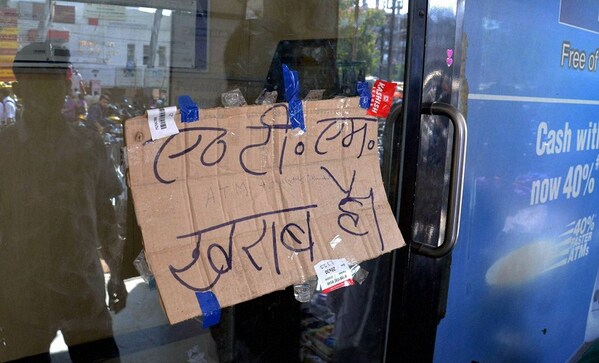 ए॰ टी॰ एम॰
ATM
खराब है।
Free of
Cash with
now 40%
40%
FASTER
ATMs